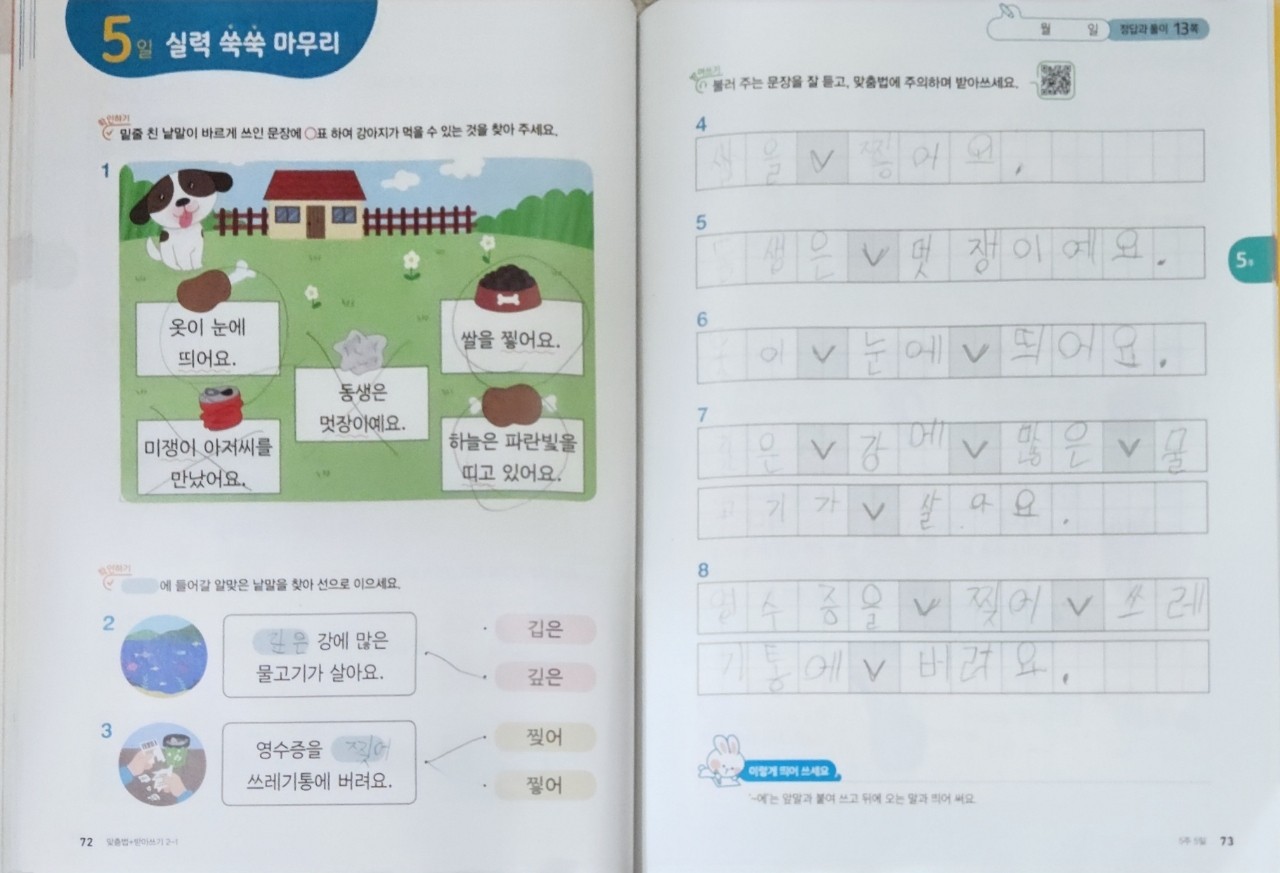 5일 실력 쑥쑥 마무리
확인하기
밑줄 친 낱말이 바르게 쓰인 문장에 ○표 하여 강아지가 먹을 수 있는 것을 찾아 주세요.
1
옷이 눈에
띄어요.
쌀을 찧어요.
동생은
멋장이예요.
미쟁이 아저씨를
만났어요.
하늘은 파란빛을
띠고 있어요.
확인하기
에 들어갈 알맞은 낱말을 찾아 선으로 이으세요.
2
깊은 강에 많은
물고기가 살아요.
깁은
깊은
3
영수증을 찢어
쓰레기통에 버려요.
찢어
찧어
72 맞춤법+받아쓰기 2-1
월 일 정답과 풀이 13쪽
받아쓰기
불러 주는 문장을 잘 듣고, 맞춤법에 주의하며 받아쓰세요.
4
쌀을 ∨ 찧어요.
5
생은 ∨ 멋쟁이예요.
6
이 ∨ 눈에 ∨ 띄어요.
7
은 ∨ 강에 ∨ 많은 ∨ 물
고기가 ∨ 살아요.
8
영수증을 ∨ 찢어 ∨ 쓰레
기통에 ∨ 버려요.
5주
이렇게 띄어 쓰세요
'~에'는 앞말과 붙여 쓰고 뒤에 오는 말과 띄어 써요.
5주 5일 73